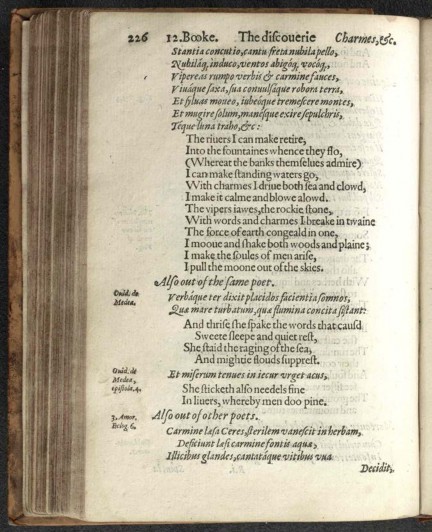 226 12. Booke. The discouerie Charmes, &c.
Stantia concutio, cantu freta nubila pello,
Nubiláq; induco, ventos abigóq; vocóq;,
Vipereas rumpo verbis & carmine fauces,
Viuáque saxa, sua conuulsáque robora terra,
Et syluas moueo, iubeóque tremescere montes,
Et mugire solum, manésque exire sepulchris,
Téque luna traho, &c:
The riuers I can make retire,
Into the fountaines whence they flo,
(Whereat the banks themselues admire)
I can make standing waters go,
With charmes I driue both sea and clowd,
I make it calme and blowe alowd.
The vipers iawes, the rockie stone,
With words and charmes I breake in twaine
The force of earth congeald in one,
I mooue and shake both woods and plaine;
I make the soules of men arise,
I pull the moone out of the skies.
Also out of the same poet.
Ouid. de
Medea.
Verbáque ter dixit placidos facientia somnos,
Quæ mare turbatum, quæ flumina concita sistant:
And thrise she spake the words that causd
Sweete sleepe and quiet rest,
She staid the raging of the sea,
And mightie flouds supprest.
Ouid. de
Medea,
epistola. 4.
Et miserum tenues in iecur vrget acus,
She sticketh also needels fine
In liuers, whereby men doo pine.
3. Amor.
Eclog 6.
Also out of other poets.
Carmine læsa Ceres, sterilem vanescit in herbam,
Deficiunt læsi carmine fontis aquæ,
Illicibus glandes, cantatáque vitibus vua
Decidit,